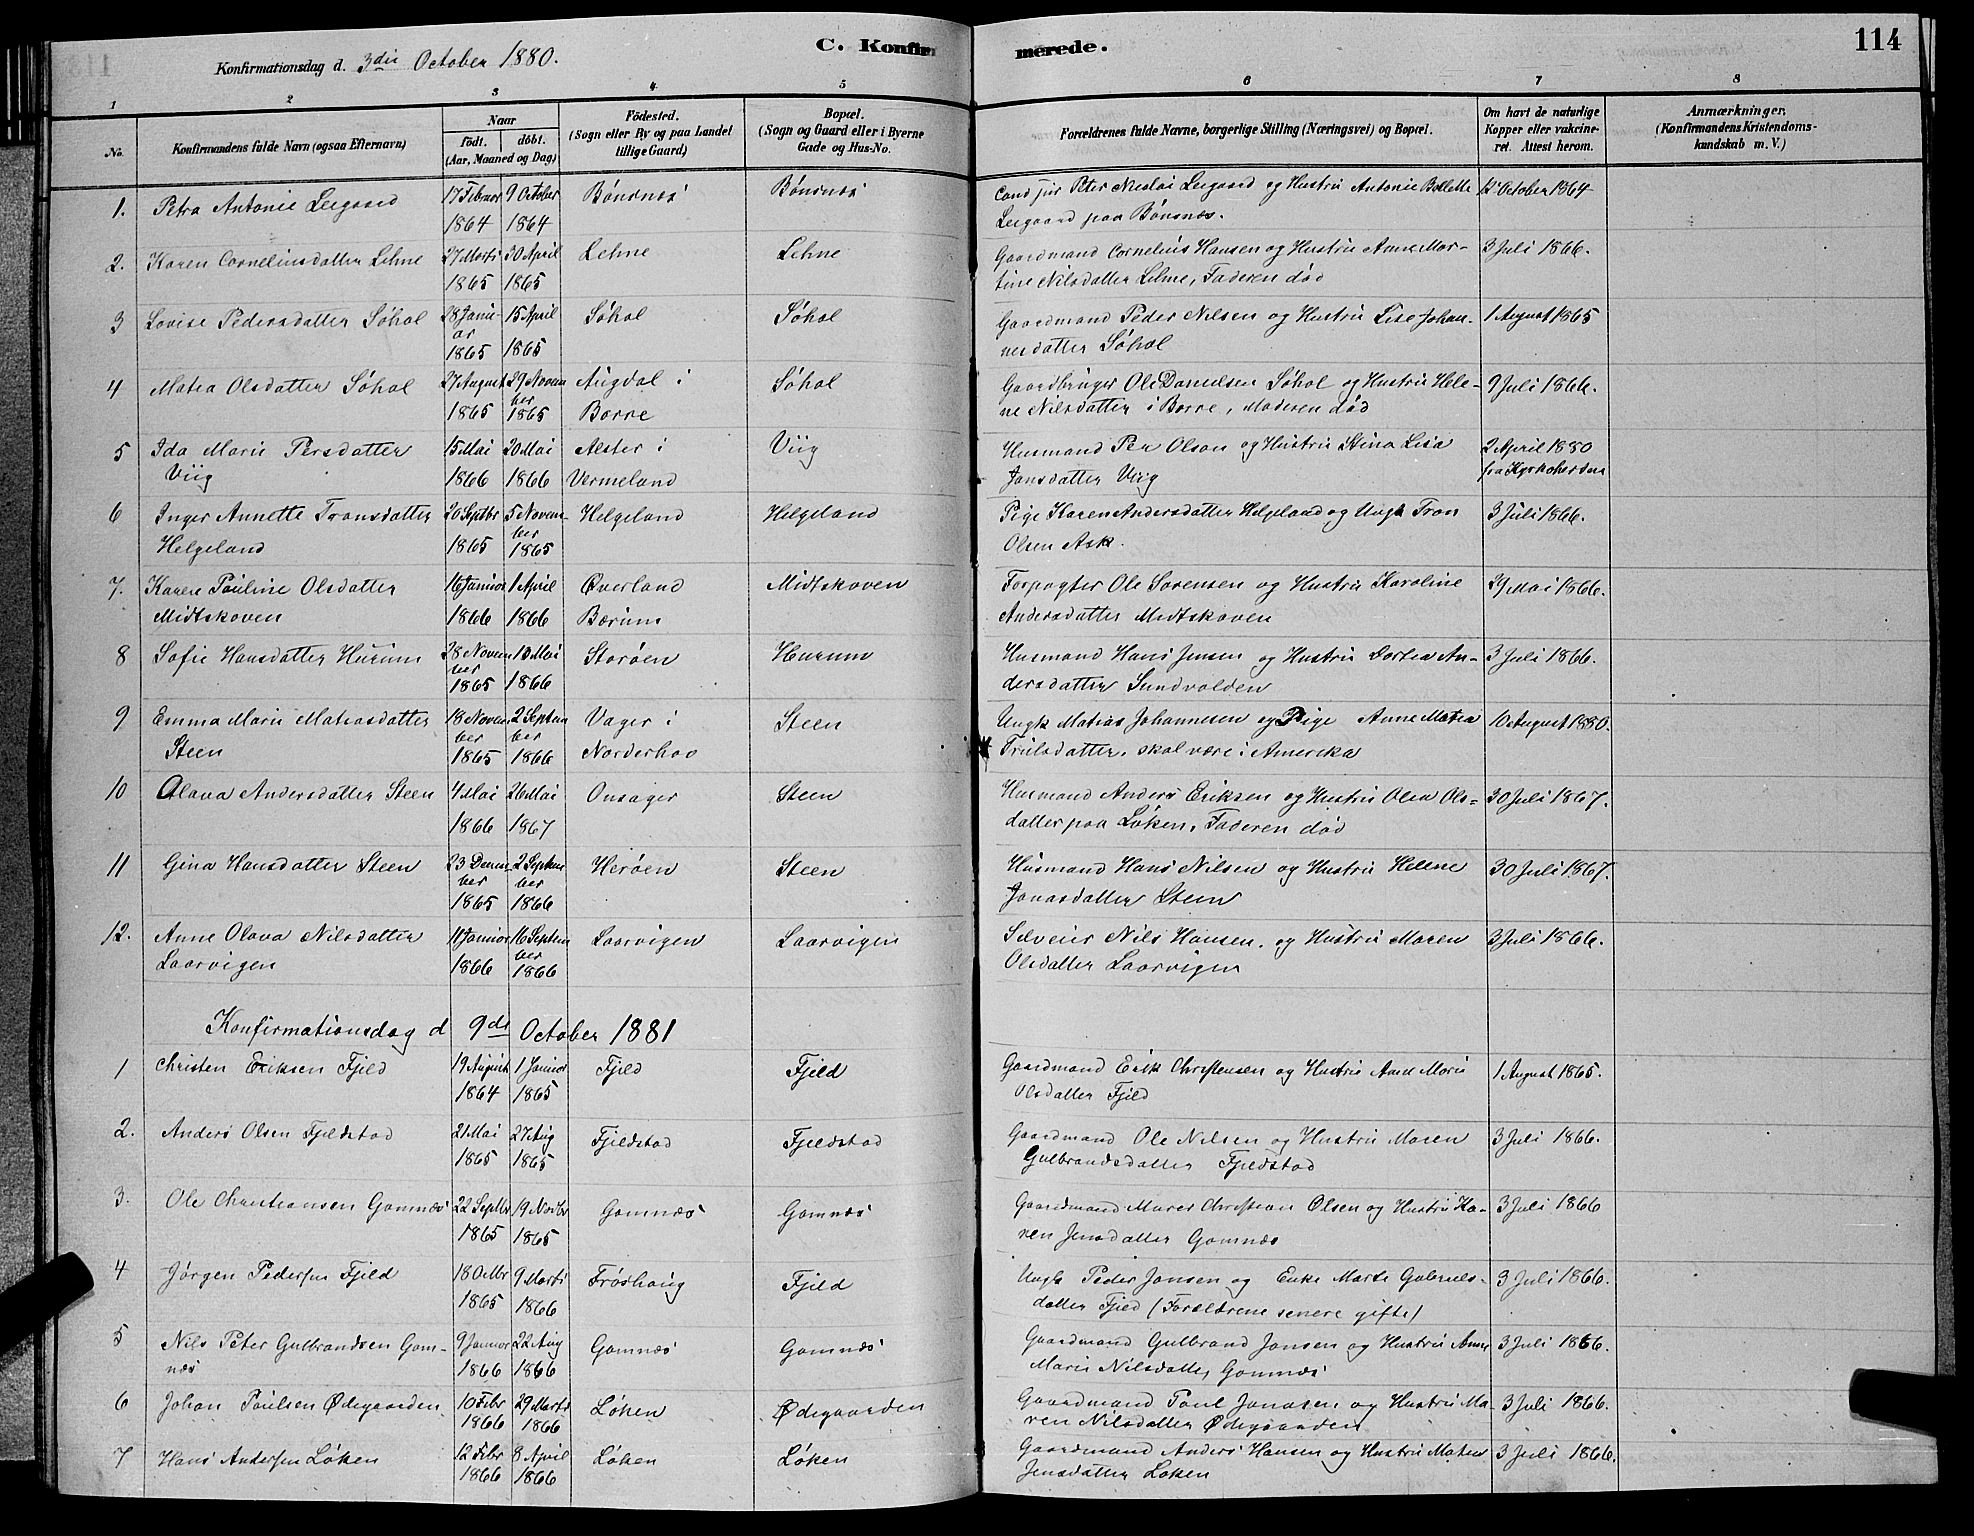 C. Konfirmerede.
114
Konfirmationsdag d. 3die October 1880.
1 2 3 4 5 6 7 8
No.
Konfirmandens fulde Navn (ogsaa Efternavn)
Naar
födt. döbt.
(Aar, Maaned og Dag)
Födested.
(Sogn eller By og paa Landet
tillige Gaard)
Bopæl.
(Sogn og Gaard eller i Byerne
Gade og Hus-No.
Forældrenes fulde Navne, borgerlige Stilling (Næringsvei) og Bopæl.
Om havt de naturlige
Kopper eller vakcine-
ret. Attest herom.
Anmærkninger,
(Konfirmandens Kristendoms-
kundskab m. V.)
1. Petra Antonie Leegaard 17 Februar 9 October Bönsnæs Bönsnæs Cand jur Peter Nicolai Leegaard og Hustru Antonie Bollette 12 October 1864
1864 1864 Leegaard paa Bönsnæs.
2. Karen Corneliusdatter Lehne 27 Marts 30 April Lehne Lehne Gaardmand Cornelius Hansen og Hustru Anne Mar- 3 Juli 1866.
1865 1865 tine Nilsdatter Lehne, Faderen död
3 Lovise Pedersdatter Söhol 28 Janu- 15 April Söhol Söhol Gaardmand Peder Nilsen og Hustru Lise Johan- 1 August 1865
ar
1865 1865 nesdatter Söhol
4 Matea Olsdatter Söhol 27 August 29 Novem Augdal i Söhol Gaardbruger Ole Danielsen Söhol og Hustru Hele- 9 Juli 1866.
ber
1865 1865 Borre ne Nilsdatter i Borre, Moderen död
5 Ida Marie Persdatter 15 Mai 20 Mai Alster i Viig Husmand Per Olson og Hustru Stina Lisa 2 April 1880
Viig 1866 1866 Vermeland Jansdatter Viig fra Kyrkoherden
6 Inger Annette Transdatter 20 Septbr 5 Novem- Helgeland Helgeland Pige Karen Andersdatter Helgeland og Ungk Tron 3 Juli 1866.
ber
Helgeland 1865 1865 Olsen Ask.
7. Karen Pauline Olsdatter 16 Januar 1 April Överland Midtskoven Forpagter Ole Sorensen og Hustru Karoline 29 Mai 1866.
Midtskoven 1866 1866 Bærum Andersdatter Midtskoven
8 Sofie Hansdatter Hurum 28 Novem 10 Mai Storöen Hurum Husmand Hans Jensen og Hustru Dortea An- 3 Juli 1866.
ber
1865 1866 dersdatter Sundvolden
9 Emma Marie Matiasdatter 18 Novem 2 Septem Vager i Steen Ungk Matias Johannesen og Pige Anne Matea 10 August 1880.
ber ber
Steen 1865 1866 Norderhov Trulsdatter, skal være i Amerika
10 Olava Andersdatter Steen 4 Mai 26 Mai Onsager Steen Husmand Anders Eriksen og Hustru Olea Ols- 30 Juli 1867.
1866 1867 datter paa Löken, Faderen död
11 Gina Hansdatter Steen 23 Decem- 2 Septem Heröen Steen Husmand Hans Nilsen og Hustru Helene 30 Juli 1867.
ber ber
1865 1866 Jonasdatter Steen
12. Anne Olava Nilsdatter 11 Januar 16 Septem Laarvigen Laarvigen Selveier Nils Hansen, og Hustru Maren 3 Juli 1866.
ber
Laarvigen 1866 1866 Olsdatter Laarvigen
Konfirmationsdag d 9de October 1881
1 Christen Eriksen Fjeld 19 August 1 Januar Fjeld Fjeld Gaardmand Erik Christensen og Hustru Anne Marie 1 August 1865.
1864 1865 Olsdatter Fjeld
2. Anders Olsen Fjeldstad 21 Mai 27 Aug Fjeldstad Fjeldstad Gaardmand Ole Nilsen og Hustru Maren 3 Juli 1866.
1865 1865 Gulbrandsdatter Fjeldstad
3. Ole Christiansen Gomnæs 22 Septbr 19 Novbr Gomnæs Gomnæs Gaardmand Christian Olsen og Hustru Ka- 3 Juli 1866
1865 1865 ren Jensdatter Gomnæs
4 Jörgen Pedersen Fjeld 18 9 Marts Fröshaug Fjeld Ungk Peder Jansen og Enke Marte Gabriels- 3 Juli 1866.
1865 1866 datter Fjeld (Forældrene senere gifte)
5 Nils Peter Gulbrandsen Gom- 9 Januar 22 Aug Gomnæs Gomnæs Gaardmand Gulbrand Jonsen og Hustru Anne 3 Juli 1866.
næs 1866 1866 Marie Nilsdatter Gomnæs
6 Johan Paulsen Ödegaarden 10 Febr 29 Marts Löken Ödegaarden Gaardmand Paul Jonasen og Hustru Ma- 3 Juli 1866.
1866 1866 ren Nilsdatter Ödegaarden
7 Hans Andersen Löken 12 Febr 8 April Löken Löken Gaardmand Anders Hansen og Hustru Maren 3 Juli 1866.
1866 1866 Jensdatter Löken